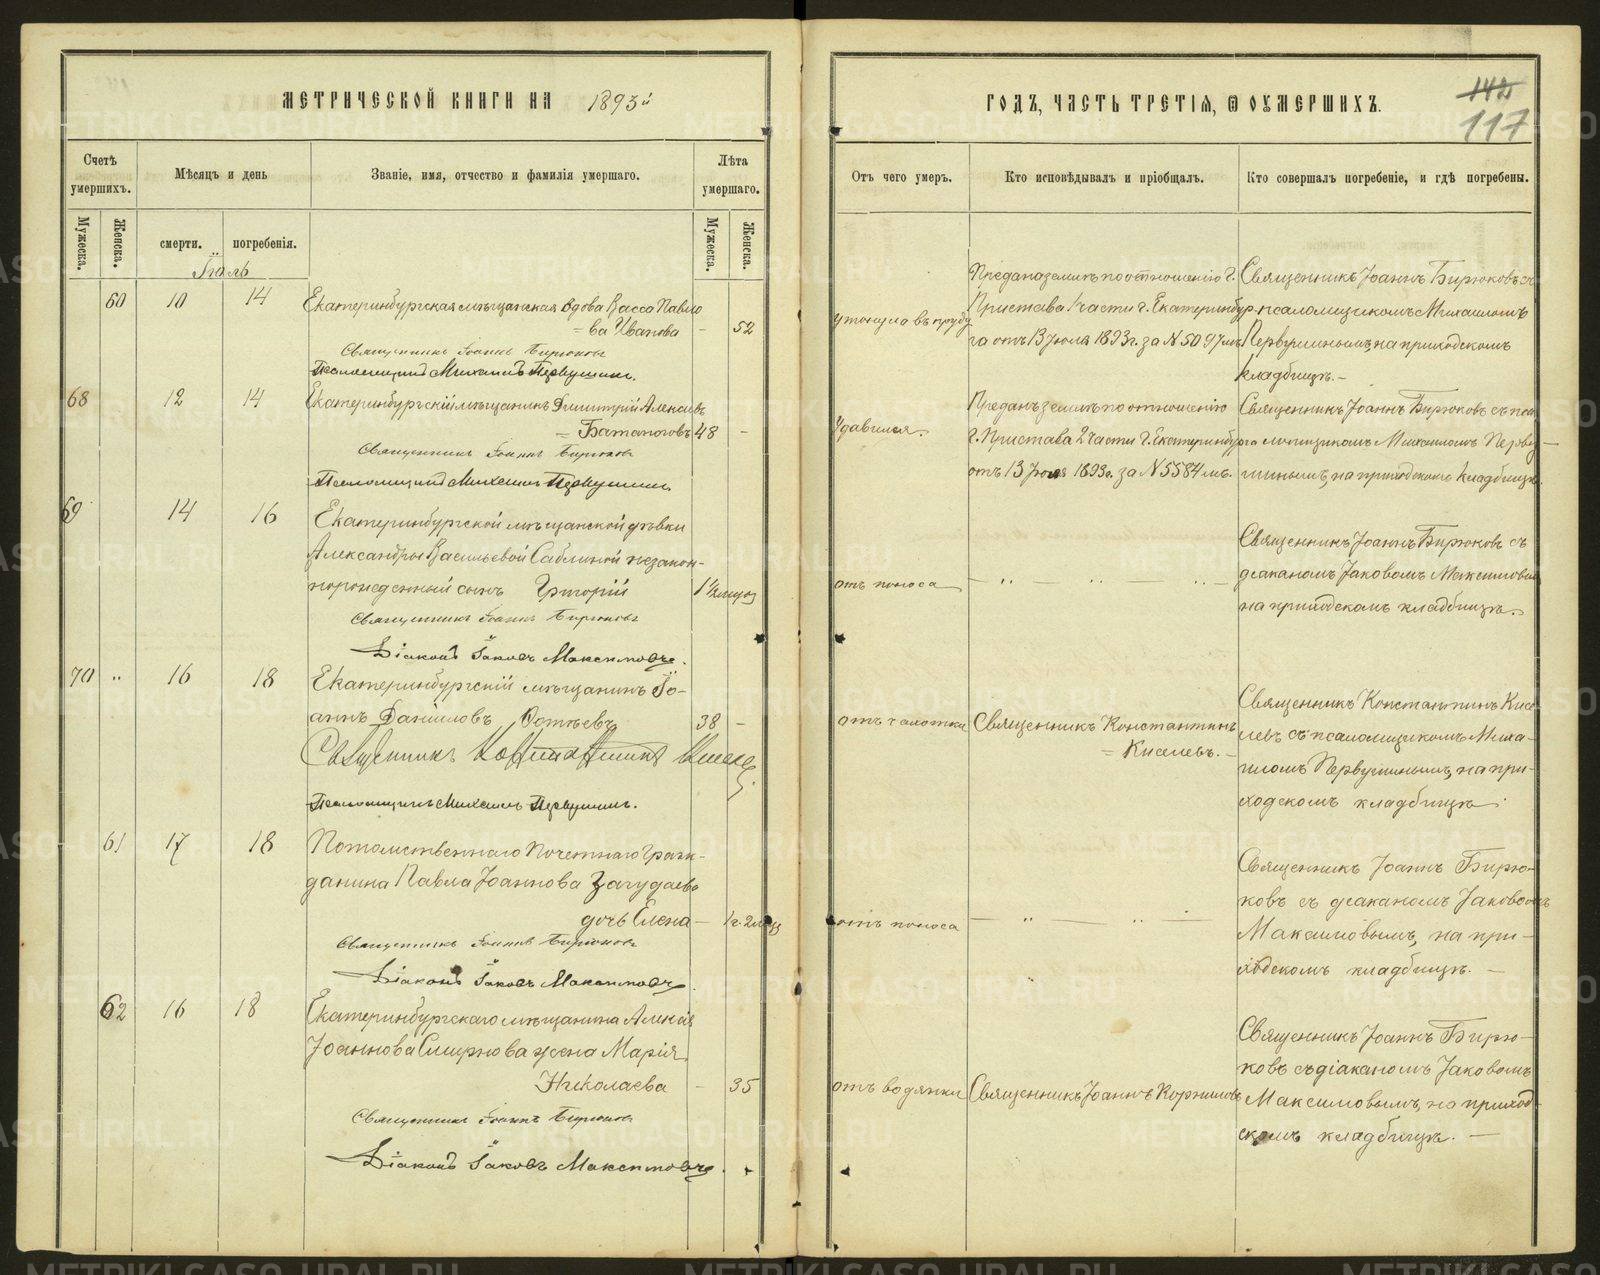 МЕТРИЧЕСКОЙ КНИГИ НА 1893й
ГОДЪ, ЧАСТЬ ТРЕТІЯ, Ѿ ОУМЕРШИХЪ.
142
117
Счетъ умершихъ.
Мѣсяцъ и день
Званіе, имя, отчество и фамилія умершаго.
Лѣта умершаго.
Отъ чего умеръ.
Кто исповѣдывалъ и пріобщалъ.
Кто совершалъ погребеніе, и гдѣ погребены.
Мужеска.
Женска.
смерти.
погребенія.
Мужеска.
Женска.
Іюль
60 10 14
Екатеринбургская мѣщанская вдова Васса Павло
= ва Иванова - 52
Священникъ Іоаннъ Бирюковъ
Псаломщикъ Михаилъ Первушинъ.
утонула въ пруду
Предана землѣ по отношенію г.
Пристава 1 части г. Екатеринбур-
га отъ 13 Іюля 1893 г. за № 5097мъ
Священникъ Іоаннъ Бирюковъ съ
псаломщикомъ Михаиломъ
Первушинымъ, на приходскомъ
кладбищѣ. -
68 12 14
Екатеринбургскій мѣщанинъ Димитрій Алексѣевъ
= Батаноговъ 48 -
Священникъ Іоаннъ Бирюковъ
Псаломщикъ Михаилъ Первушинъ
Удавился.
Преданъ землѣ по отношенію
г. Пристава 2 части г. Екатеринбурга
отъ 13 Іюля 1893 г. за № 5584мъ.
Священникъ Іоаннъ Бирюковъ съ псал
ломщикомъ Михаиломъ Перву-
шинымъ, на приходскомъ кладбищѣ.
69 14 16
Екатеринбургской мѣщанской дѣвки
Александры Васильевой Саблиной незакон-
норожденный сынъ Григорій 1 1/2 мѣсяц
Священникъ Іоаннъ Бирюковъ
Діаконъ Іаковъ Максимовъ.
отъ поноса
- " " " -
Священникъ Іоаннъ Бирюковъ съ
діакономъ Іаковомъ Максимовым
на приходскомъ кладбищѣ.
70 " 16 18
Екатеринбургскій мѣщанинъ Іо-
аннъ Даніиловъ 38 -
Священникъ Константинъ Киселевъ
Псаломщикъ Михаилъ Первушинъ.
отъ чахотки
Священникъ Константинъ
= Киселевъ. -
Священникъ Константинъ Кисе
левъ съ псаломщикомъ Миха-
иломъ Первушинымъ, на при-
ходскомъ кладбищѣ.
61 17 18
Потомственнаго Почетнаго Граж-
данина Павла Іоаннова
дочь Елена - 1 г. 2 мѣс
Священникъ Іоаннъ Бирюковъ
Діаконъ Іаковъ Максимовъ
отъ поноса
- " " "
Священникъ Іоаннъ Бирю-
ковъ съ діакономъ Іаковомъ
Максимовымъ, на при-
ходскомъ кладбищѣ. -
62 16 18
Екатеринбургскаго мѣщанина Алексія
Іоаннова Смирнова жена Марія
Николаева - 35
Священникъ Іоаннъ Бирюковъ
Діаконъ Іаковъ Максимовъ.
отъ водянки
Священникъ Іоаннъ Корниловъ
Священникъ Іоаннъ Бирю-
ковъ съ діакономъ Іаковомъ
Максимовымъ, на приход-
скомъ кладбищѣ. -
METRIKI.GASO-URAL.RU